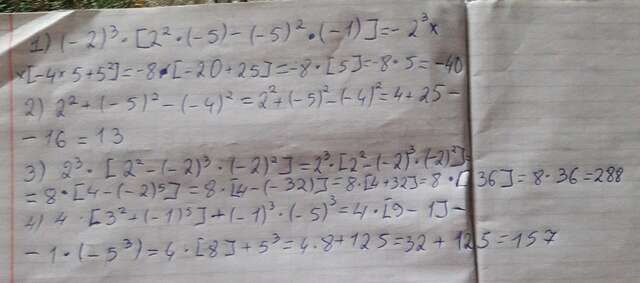 1) (-2)³ · [2² · (-5) - (-5)² · (-1)] = -2³ ×
×[-4 × 5 + 5²] = -8 · [-20 + 25] = -8 · [5] = -8 · 5 = -40
2) 2² + (-5)² - (-4)² = 2² + (-5)² - (-4)² = 4 + 25 -
- 16 = 13
3) 2³ · [2² - (-2)³ · (-2)²] = 2³ · [2² - (-2)³ · (-2)²] =
= 8 · [4 - (-2)⁵] = 8 · [4 - (-32)] = 8 · [4 + 32] = 8 · [36] = 8 · 36 = 288
4) 4 · [3² + (-1)⁵] + (-1)³ · (-5)³ = 4 · [9 - 1] -
- 1 · (-5³) = 4 · [8] + 5³ = 4 · 8 + 125 = 32 + 125 = 157